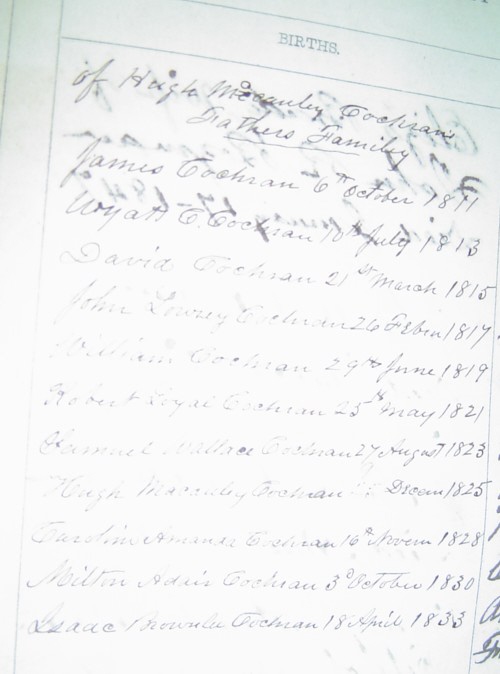 BIRTHS.
of Hugh Mccauley Cochrans
Fathers Family
James Cochran 6th October 1811
Wyatt C. Cochran 10th July 1813
David Cochran 21st March 1815
John Lowrey Cochran 26 Febru 1817
William Cochran 29th June 1819
Robert Loyal Cochran 25th May 1821
Samuel Wallace Cochran 27 August 1823
Hugh Mccauley Cochran Decem 1825
Caroline Amanda Cochran 16th Novem 1828
Milton Adair Cochran 3d October 1830
Isaac Brownlee Cochran 18 April 1833